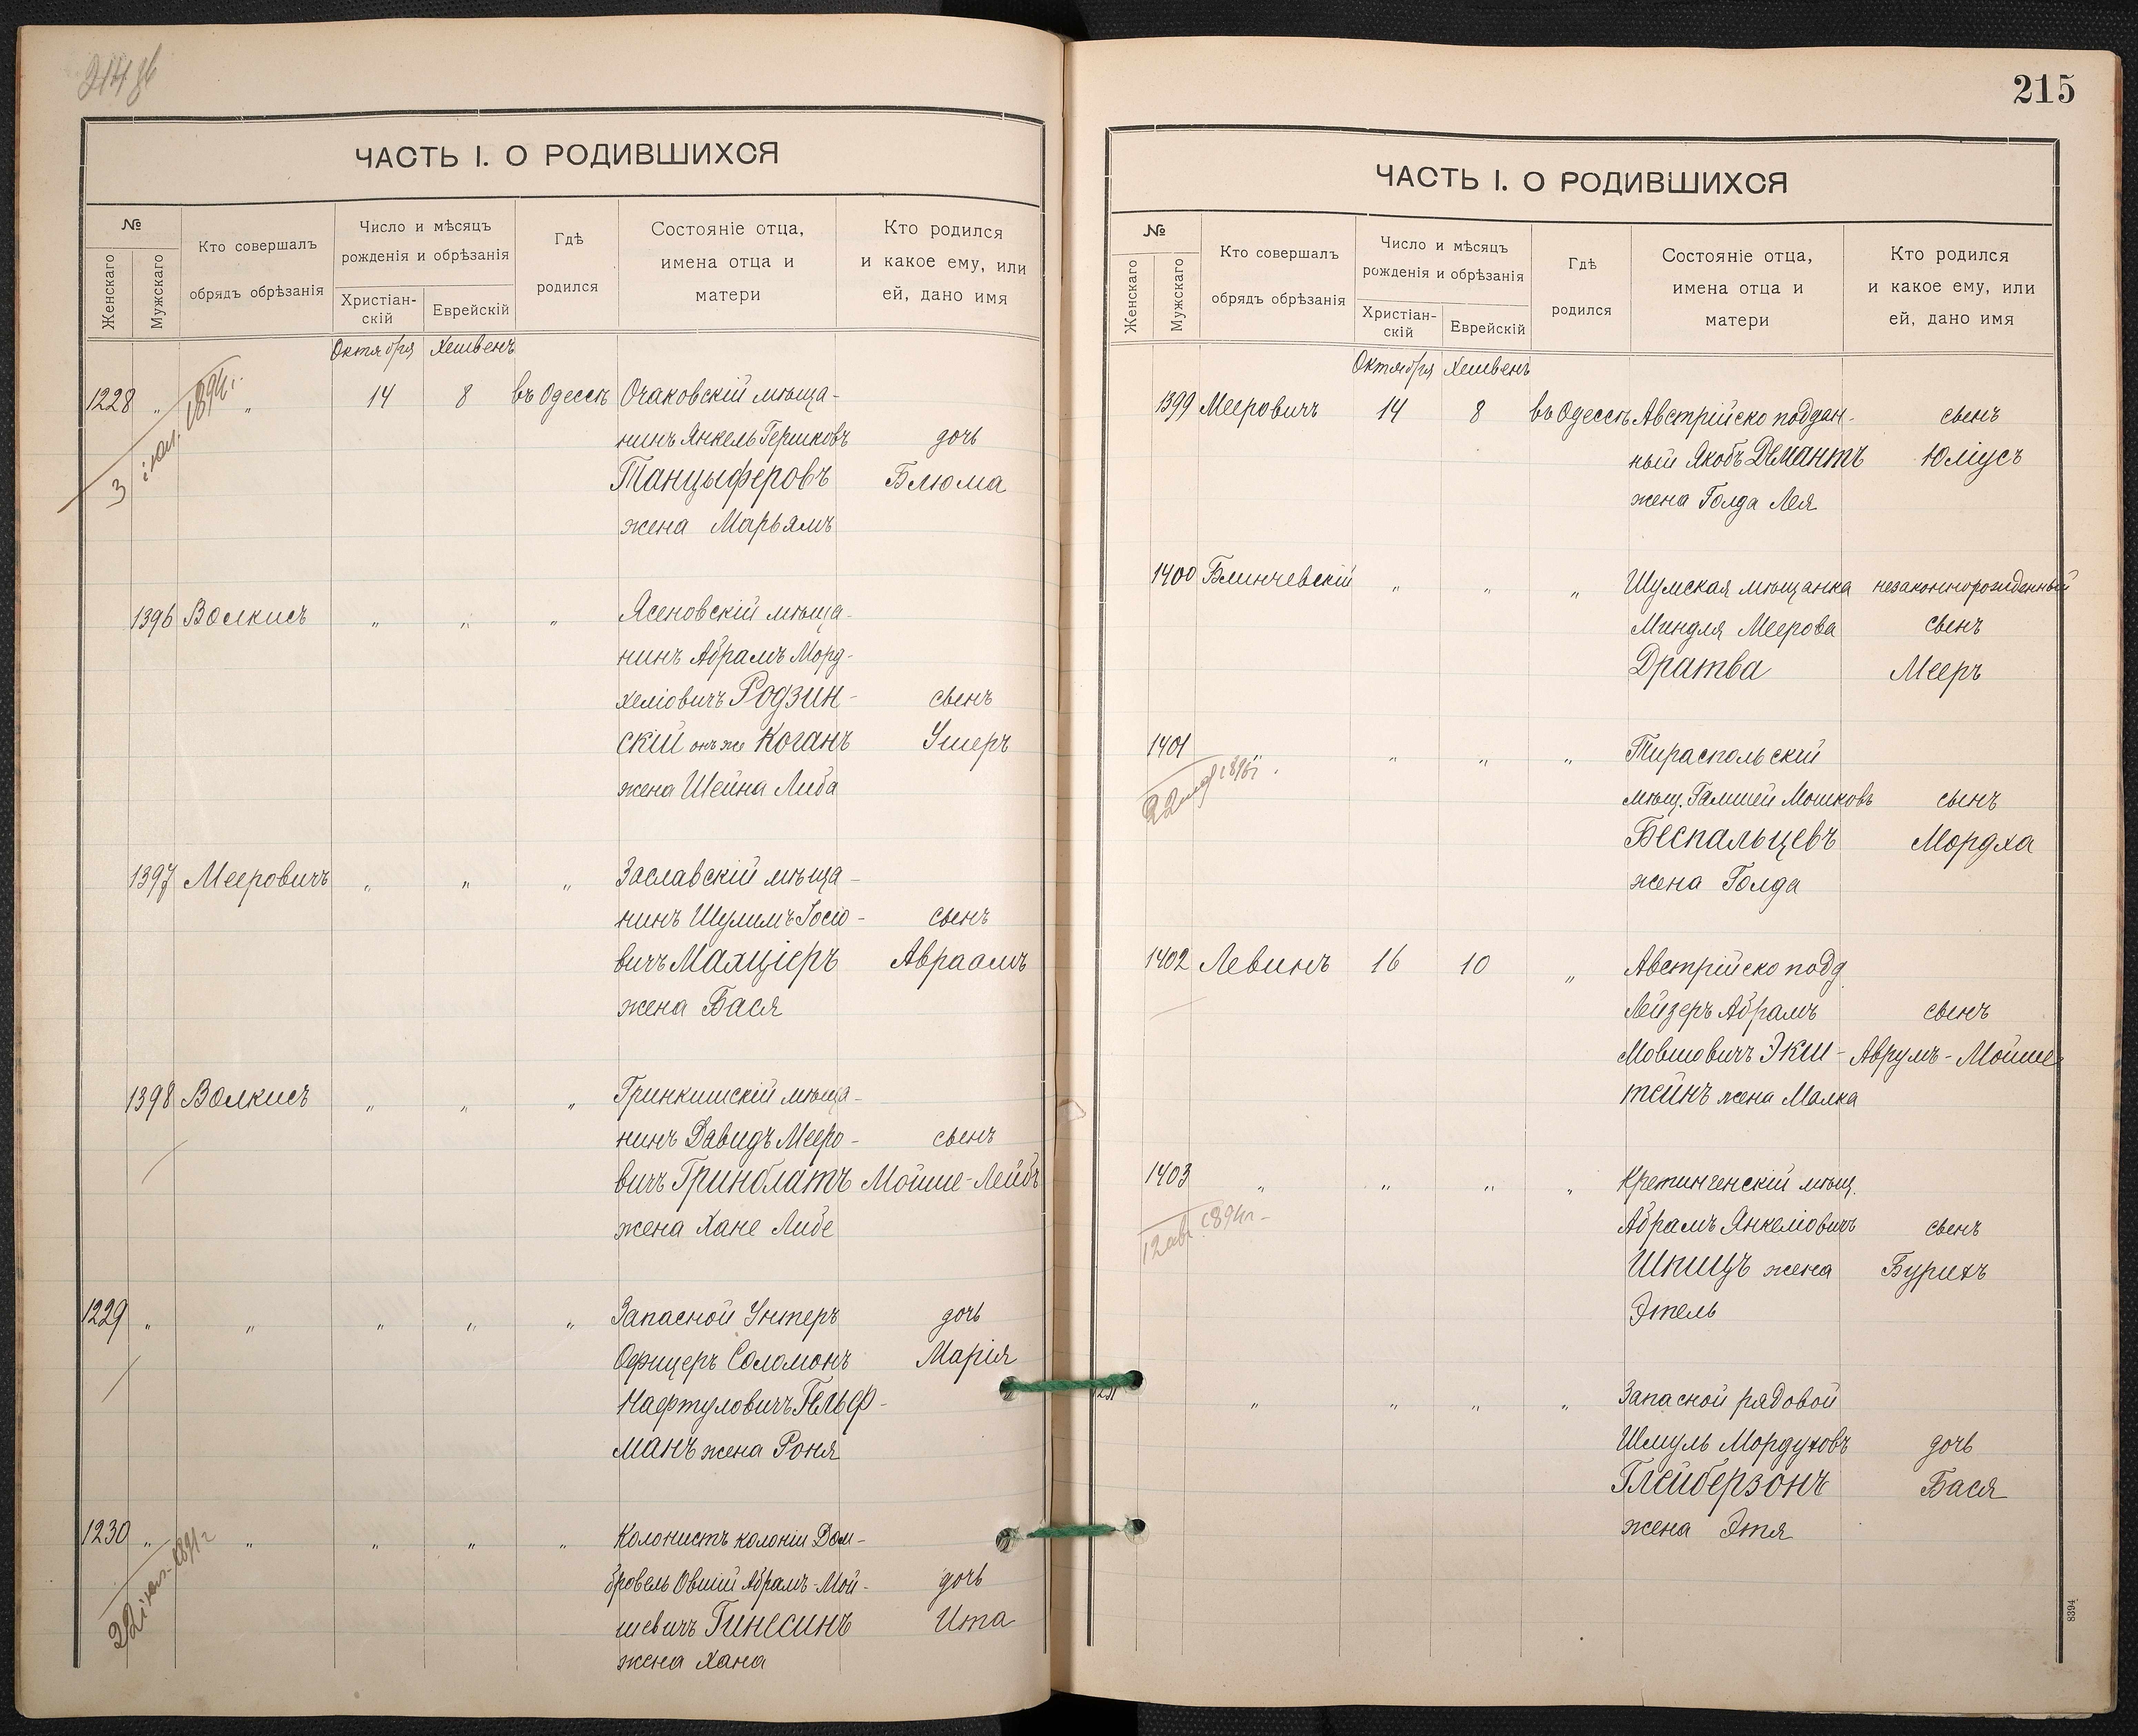 ЧАСТЬ I. О РОДИВШИХСЯ
№
Женскаго
Мужскаго
Кто совершалъ
обрядъ обрѣзанія
Число и мѣсяцъ
рожденія и обрѣзанія
Христіан-
скій
Еврейскій
Гдѣ
родился
Состояніе отца,
имена отца и
матери
Кто родился
и какое ему, или
ей, дано имя
Октября Хешвенъ
1228 „ „ 14 8 въ Одессѣ Очаковскій мѣща-
нинъ Янкель Гершковъ дочь
Танцыферовъ Блюма
жена Марьямъ
1396 Волкисъ „ „ „ Ясеновскій мѣща-
нинъ Абрамъ Морд-
хеліовичъ Родзин- сынъ
скій онъ же Коганъ Ушеръ
жена Шейна Либа
1397 Мееровичъ „ „ „ Заславскій мѣща-
нинъ Шулимъ Іосіо- сынъ
вичъ Малціеръ Авраамъ
жена Бася
1398 Волкисъ „ „ „ Гринкишскій мѣща-
нинъ Давидъ Мееро- сынъ
вичъ Гринблатъ Мойше-Лейбъ
жена Хане Либе
1229 „ „ „ „ „ Запасной Унтеръ дочь
Офицеръ Соломонъ Марія
Нафтуловичъ Гельф-
манъ жена Роня
1230 „ „ „ „ „ Колонистъ колоніи Дом-
бровель Овшій Абрамъ-Мой- дочь
шевичъ Гинесинъ Ита
жена Хана
215
ЧАСТЬ I. О РОДИВШИХСЯ
№
Женскаго
Мужскаго
Кто совершалъ
обрядъ обрѣзанія
Число и мѣсяцъ
рожденія и обрѣзанія
Христіан-
скій
Еврейскій
Гдѣ
родился
Состояніе отца,
имена отца и
матери
Кто родился
и какое ему, или
ей, дано имя
Октября Хешвенъ
1399 Мееровичъ 14 8 въ Одессѣ Австрійско поддан- сынъ
ный Якобъ Демантъ Юліусъ
жена Голда Лея
1400 Блинчевскій „ „ „ Шумская мѣщанка незаконнорожденный
Миндля Меерова сынъ
Дратва Мееръ
1401 „ „ „ „ Тираспольскій
мѣщ. Гамшей Мошковъ сынъ
Беспальцевъ Мордха
жена Голда
1402 Левинъ 16 10 „ Австрійско подд.
Лейзеръ Абрамъ сынъ
Мовшовичъ Экш- Аврумъ-Мойше
тейнъ жена Малка
1403 „ „ „ „ Кретингенскій мѣщ.
Абрамъ Янкеліовичъ сынъ
Шпицъ жена Бурихъ
Этель
„ „ „ „ Запасной рядовой
Шмуль Мордуховъ дочь
Глейберзонъ Бася
жена Этя
8394